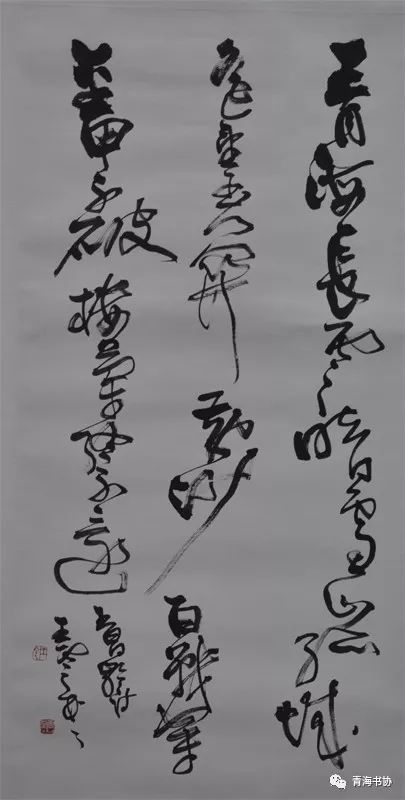 青海長雲暗雪山孤城
遥望玉門關黄沙百戰穿
金甲不破樓蘭終不還
王昌齡詩
青海书协